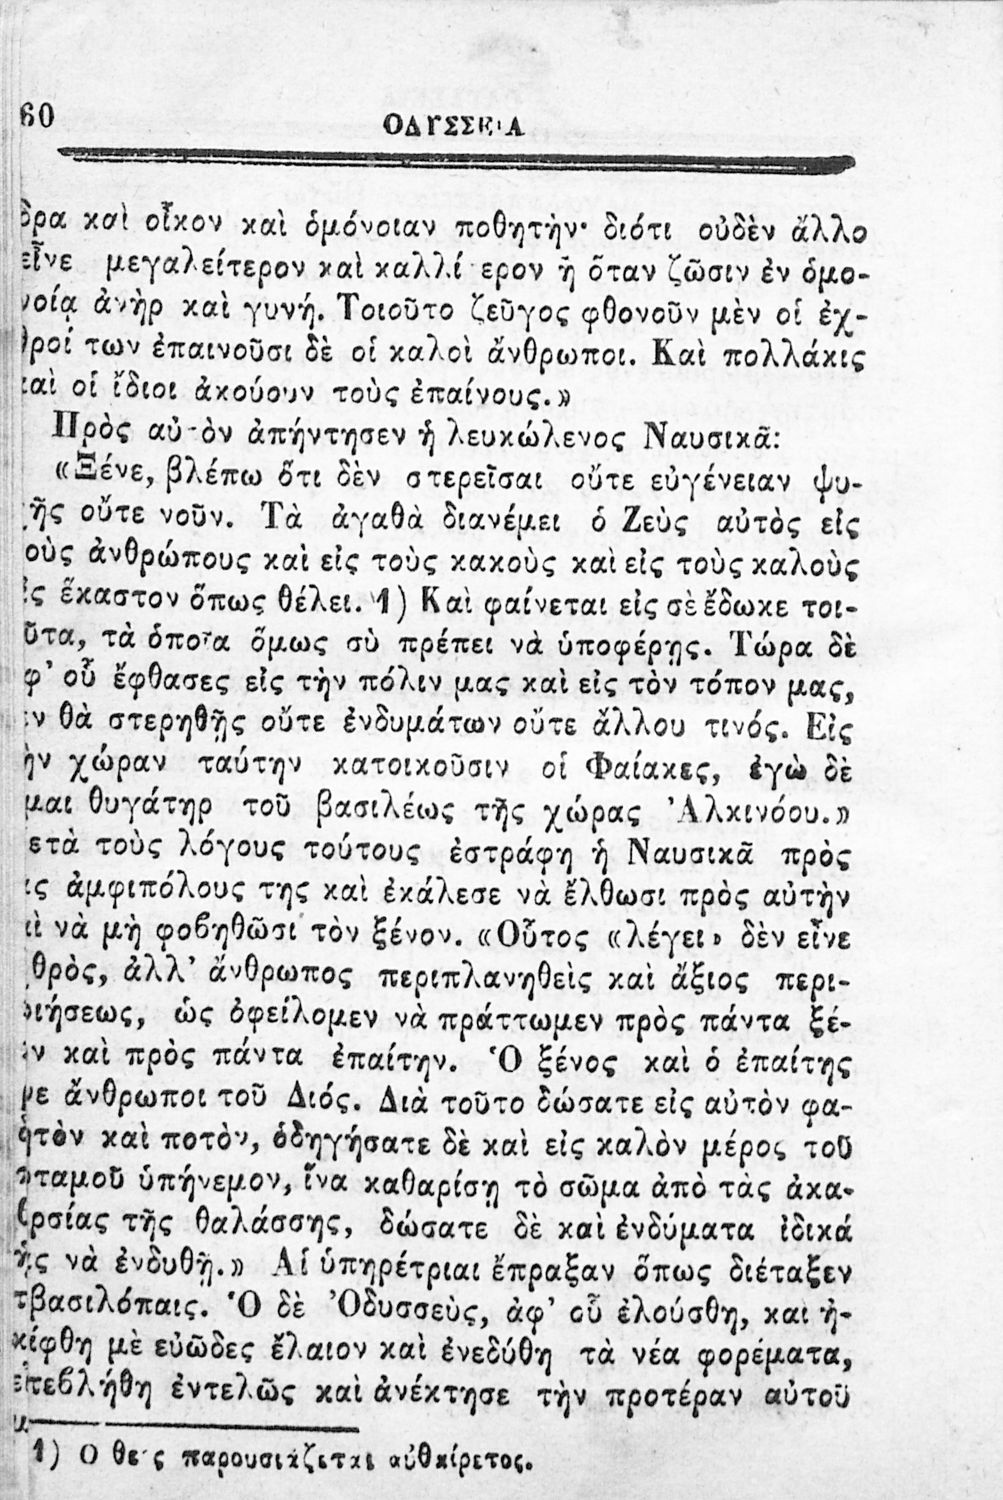 60
ΟΔΥΣΣΕΙΑ
δρα καὶ οἶκον καὶ ὁμόνοιαν ποθητὴν· διότι οὐδὲν ἄλλο
εἶνε μεγαλείτερον καὶ καλλί ερον ἢ ὅταν ζῶσιν ἐν ὁμο-
νοίᾳ ἀνὴρ καὶ γυνή. Τοιοῦτο ζεῦγος φθονοῦν μὲν οἱ ἐχ-
θροί των ἐπαινοῦσι δὲ οἱ καλοὶ ἄνθρωποι. Καὶ πολλάκις
καὶ οἱ ἴδιοι ἀκούουν τοὺς ἐπαίνους.»
Πρὸς αὐτὸν ἀπήντησεν ἡ λευκώλενος Ναυσικᾶ:
«Ξένε, βλέπω ὅτι δὲν στερεῖσαι οὔτε εὐγένειαν ψυ-
χῆς οὔτε νοῦν. Τὰ ἀγαθὰ διανέμει ὁ Ζεὺς αὐτὸς εἰς
οὺς ἀνθρώπους καὶ εἰς τοὺς κακοὺς καὶ εἰς τοὺς καλοὺς
ἰς ἕκαστον ὅπως θέλει. 1) Καὶ φαίνεται εἰς σὲ ἔδωκε τοι-
οῦτα, τὰ ὁποῖα ὅμως σὺ πρέπει νὰ ὑποφέρῃς. Τώρα δὲ
φ' οὗ ἔφθασες εἰς τὴν πόλιν μας καὶ εἰς τὸν τόπον μας,
ν θὰ στερηθῇς οὔτε ἐνδυμάτων οὔτε ἄλλου τινός. Εἰς
ὴν χώραν ταύτην κατοικοῦσιν οἱ Φαίακες, ἐγὼ δὲ
μαι θυγάτηρ τοῦ βασιλέως τῆς χώρας Ἀλκινόου.»
ετὰ τοὺς λόγους τούτους ἐστράφη ἡ Ναυσικᾶ πρὸς
ις ἀμφιπόλους της καὶ ἐκάλεσε νὰ ἔλθωσι πρὸς αὐτὴν
αὶ νὰ μὴ φοβηθῶσι τὸν ξένον. «Οὗτος «λέγει» δὲν εἶνε
θρὸς, ἀλλ' ἄνθρωπος περιπλανηθεὶς καὶ ἄξιος περι-
οιήσεως, ὡς ὀφείλομεν νὰ πράττωμεν πρὸς πάντα ξέ-
ν καὶ πρὸς πάντα ἐπαίτην. Ὁ ξένος καὶ ὁ ἐπαίτης
νε ἄνθρωποι τοῦ Διός. Διὰ τοῦτο δώσατε εἰς αὐτὸν φα-
ητὸν καὶ ποτὸν, ὁδηγήσατε δὲ καὶ εἰς καλὸν μέρος τοῦ
οταμοῦ ὑπήνεμον, ἵνα καθαρίσῃ τὸ σῶμα ἀπὸ τὰς ἀκα-
θρσίας τῆς θαλάσσης, δώσατε δὲ καὶ ἐνδύματα ἰδικά
ης νὰ ἐνδυθῇ.» Αἱ ὑπηρέτριαι ἔπραξαν ὅπως διέταξεν
τβασιλόπαις. Ὁ δὲ Ὀδυσσεὺς, ἀφ' οὗ ἐλούσθη, καὶ ἠ-
κίφθη μὲ εὐῶδες ἔλαιον καὶ ἐνεδύθη τὰ νέα φορέματα,
ετεβλήθη ἐντελῶς καὶ ἀνέκτησε τὴν προτέραν αὐτοῦ
1) Ο θεὸς παρουσιάζεται αὐθαίρετος.